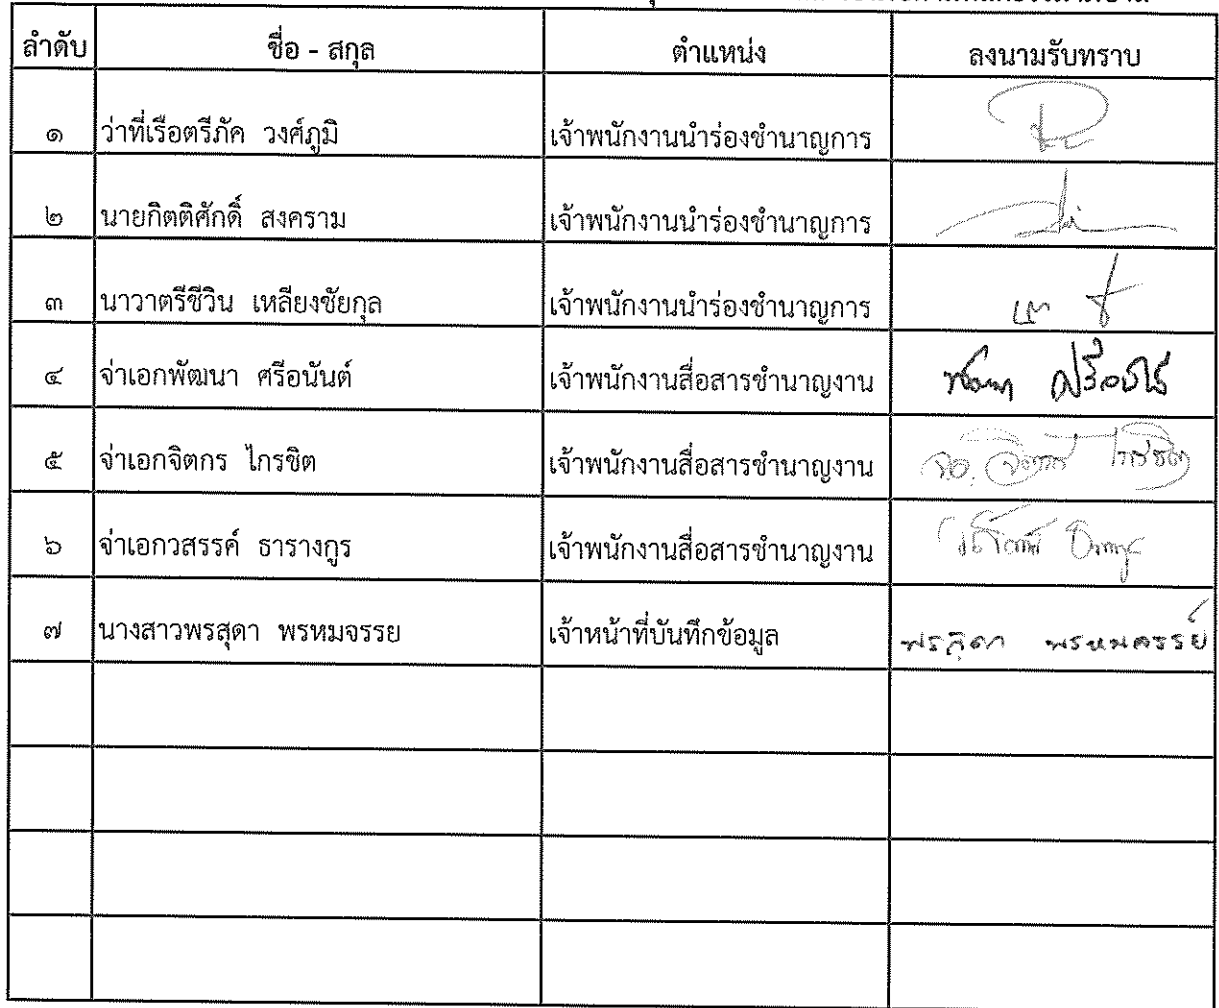 ลำดับ ชื่อ - สกุล ตำแหน่ง ลงนามรับทราบ
๑ ว่าที่เรือตรีภัค วงศ์ภูมิ เจ้าพนักงานนำร่องชำนาญการ
๒ นายกิตติศักดิ์ สงคราม เจ้าพนักงานนำร่องชำนาญการ
๓ นาวาตรีชีวิน เหลียงชัยกุล เจ้าพนักงานนำร่องชำนาญการ
๔ จ่าเอกพัฒนา ศรีอนันต์ เจ้าพนักงานสื่อสารชำนาญงาน
๕ จ่าเอกจิตกร ไกรชิต เจ้าพนักงานสื่อสารชำนาญงาน
๖ จ่าเอกวสรรค์ ธารางกูร เจ้าพนักงานสื่อสารชำนาญงาน
๗ นางสาวพรสุดา พรหมจรรย เจ้าหน้าที่บันทึกข้อมูล พรสุดา พรหมจรรย์